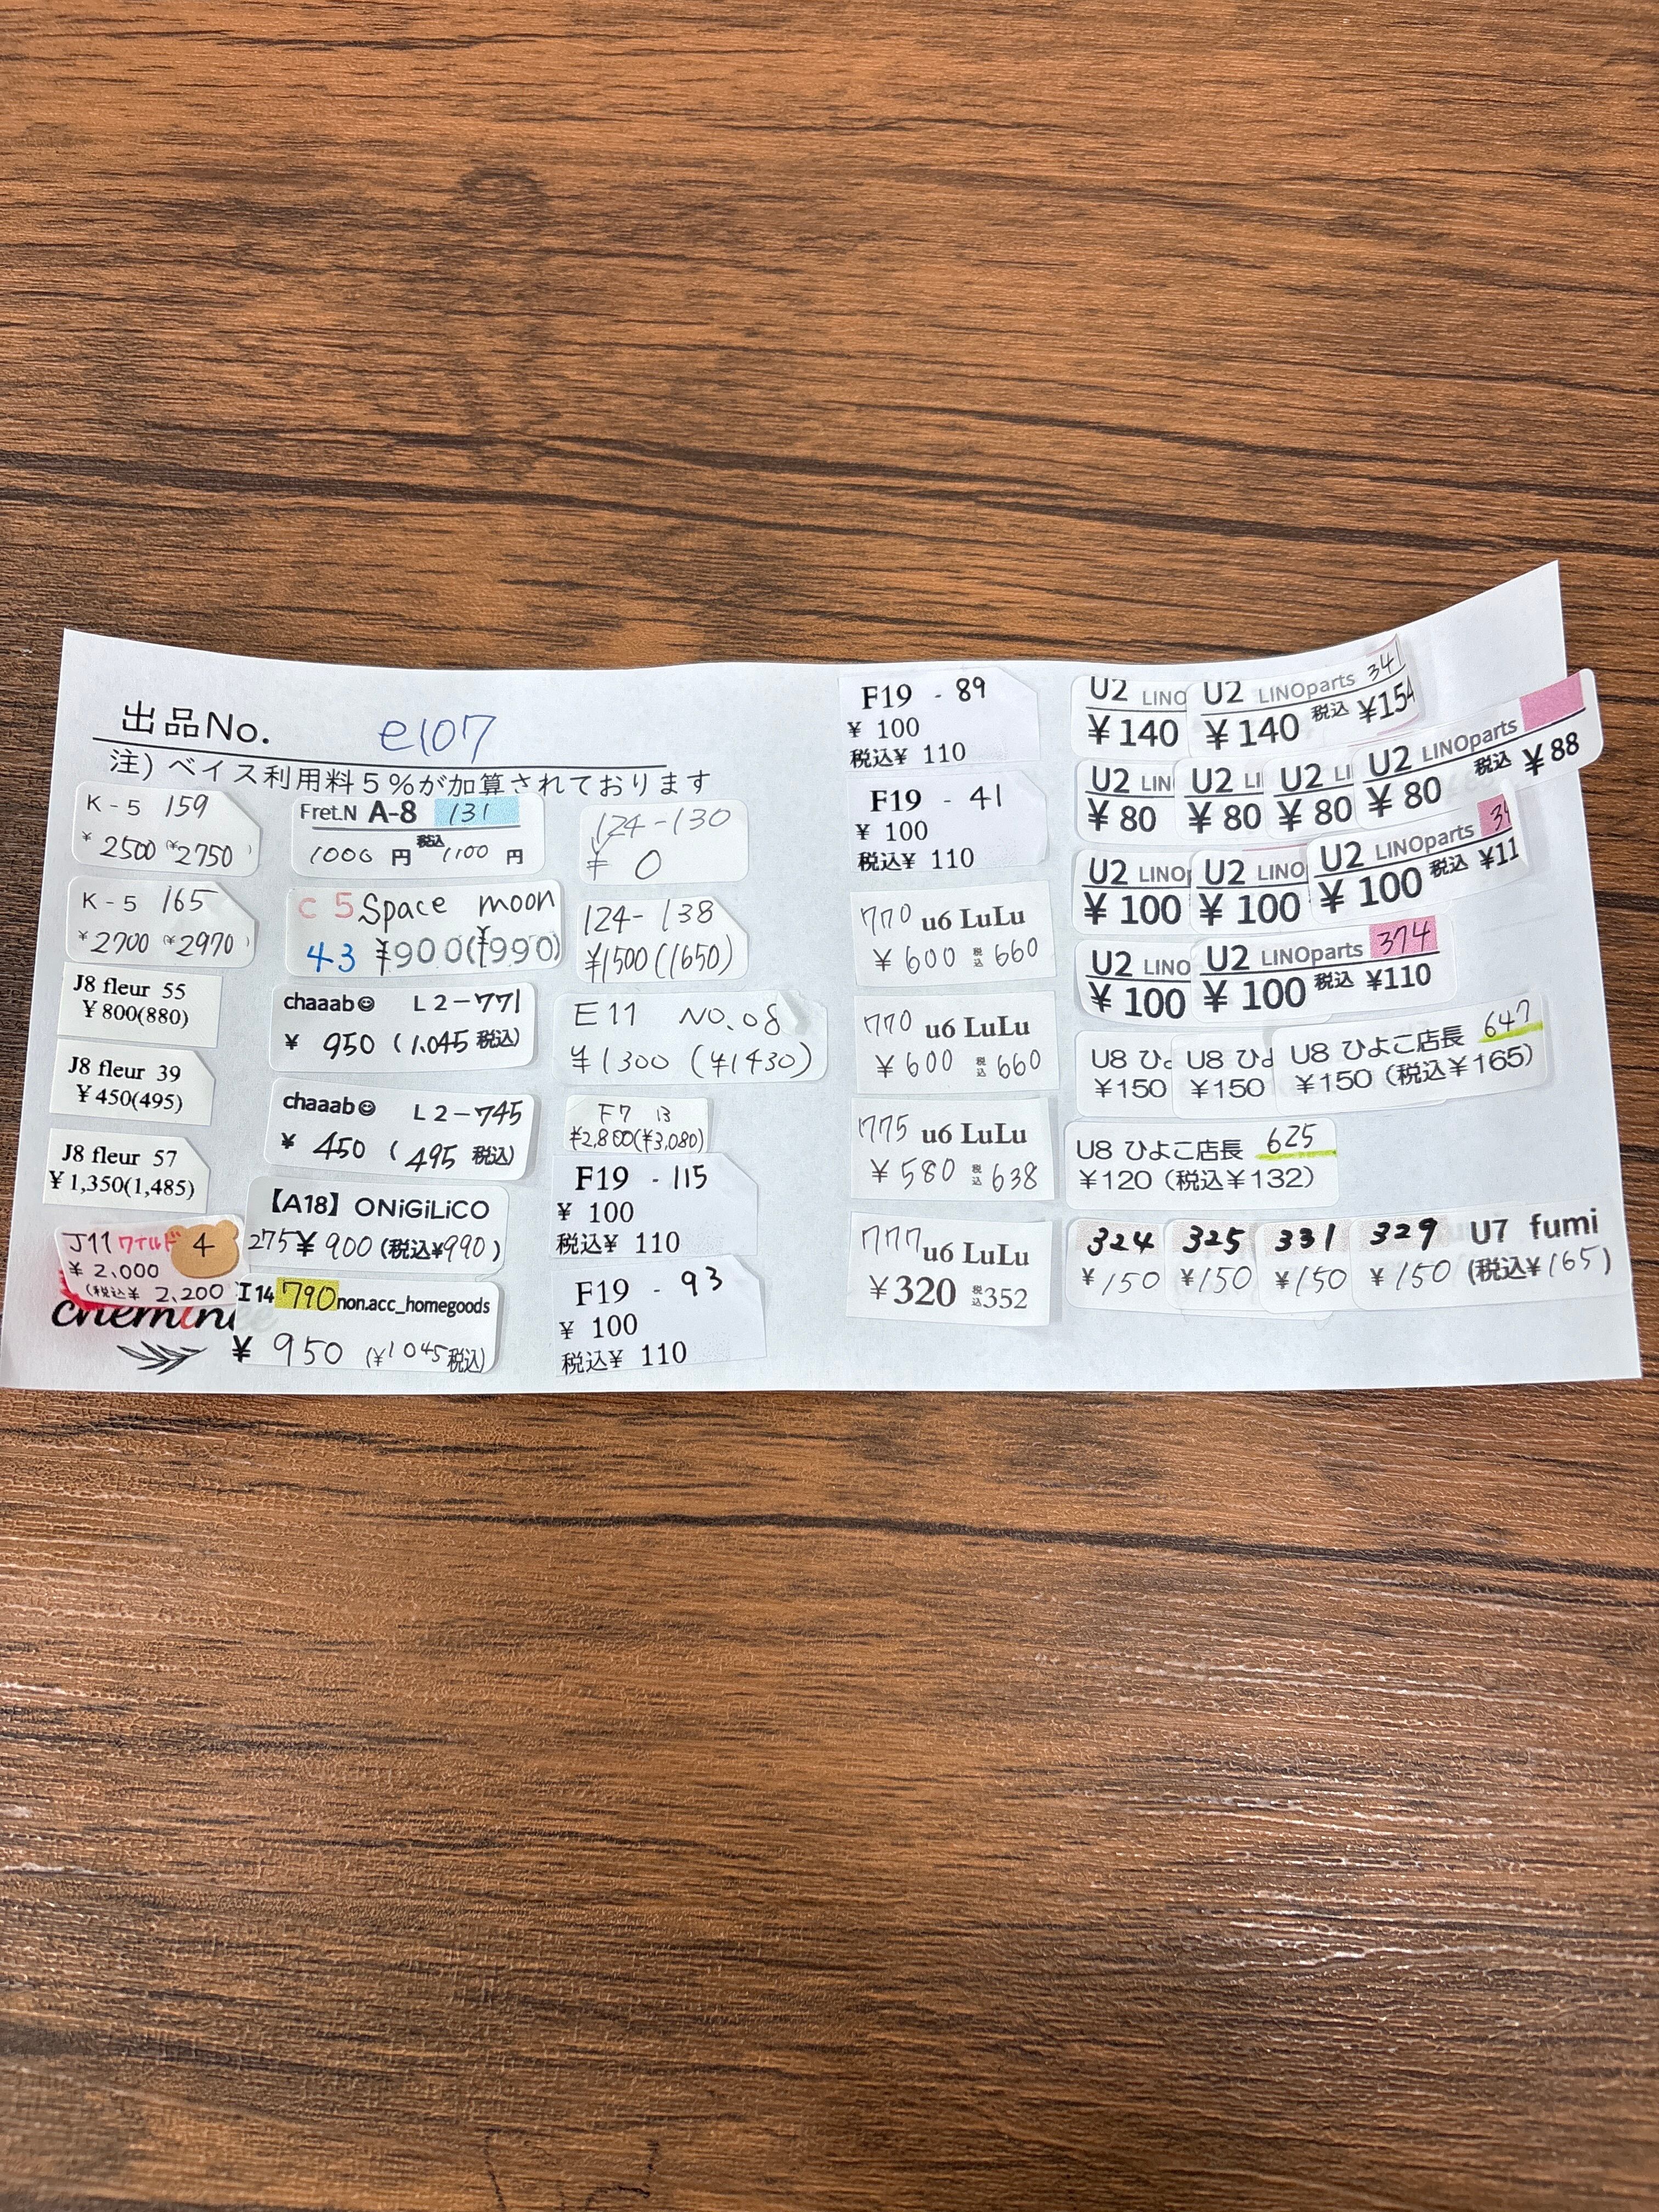 出品No. e107
注) ベイス利用料5%が加算されております
K-5 159
¥2500 (¥2750)
K-5 165
¥2700 (¥2970)
J8 fleur 55
¥800(880)
J8 fleur 39
¥450(495)
J8 fleur 57
¥1,350(1,485)
J11 ワイルド 4
¥2,000
(税込¥ 2,200
Fret.N A-8 131
1000 円 税込 1100 円
C5 Space moon
43 ¥900(¥990)
chaaab L2-771
¥ 950 (1.045 税込)
chaaab L2-745
¥ 450 (495 税込)
【A18】ONiGiLiCO
275 ¥900 (税込¥990)
I14 790 non.acc_homegoods
¥ 950 (¥1045税込)
124-130
¥ 0
124-138
¥1500(1650)
E11 NO.08
¥1300 (¥1430)
F7 13
¥2,800(¥3,080)
F19 - 115
¥ 100
税込¥ 110
F19 - 93
¥ 100
税込¥ 110
F19 - 89
¥ 100
税込¥ 110
F19 - 41
¥ 100
税込¥ 110
770 u6 LuLu
¥ 600 税込 660
770 u6 LuLu
¥ 600 税込 660
775 u6 LuLu
¥ 580 税込 638
777 u6 LuLu
¥320 税込 352
U2 LINO U2 LINOparts 341
¥140 ¥140 税込 ¥154
U2 LIN U2 LI U2 LI U2 LINOparts
¥80 ¥80 ¥80 ¥80 税込 ¥88
U2 LINO U2 LINO U2 LINOparts
¥100 ¥100 ¥100 税込 ¥11
U2 LINO U2 LINOparts 374
¥100 ¥100 税込 ¥110
U8 ひよ U8 ひよ U8 ひよこ店長 647
¥150 ¥150 ¥150 (税込¥165)
U8 ひよこ店長 625
¥120 (税込¥132)
324 325 331 329 U7 fumi
¥150 ¥150 ¥150 ¥150 (税込¥165)